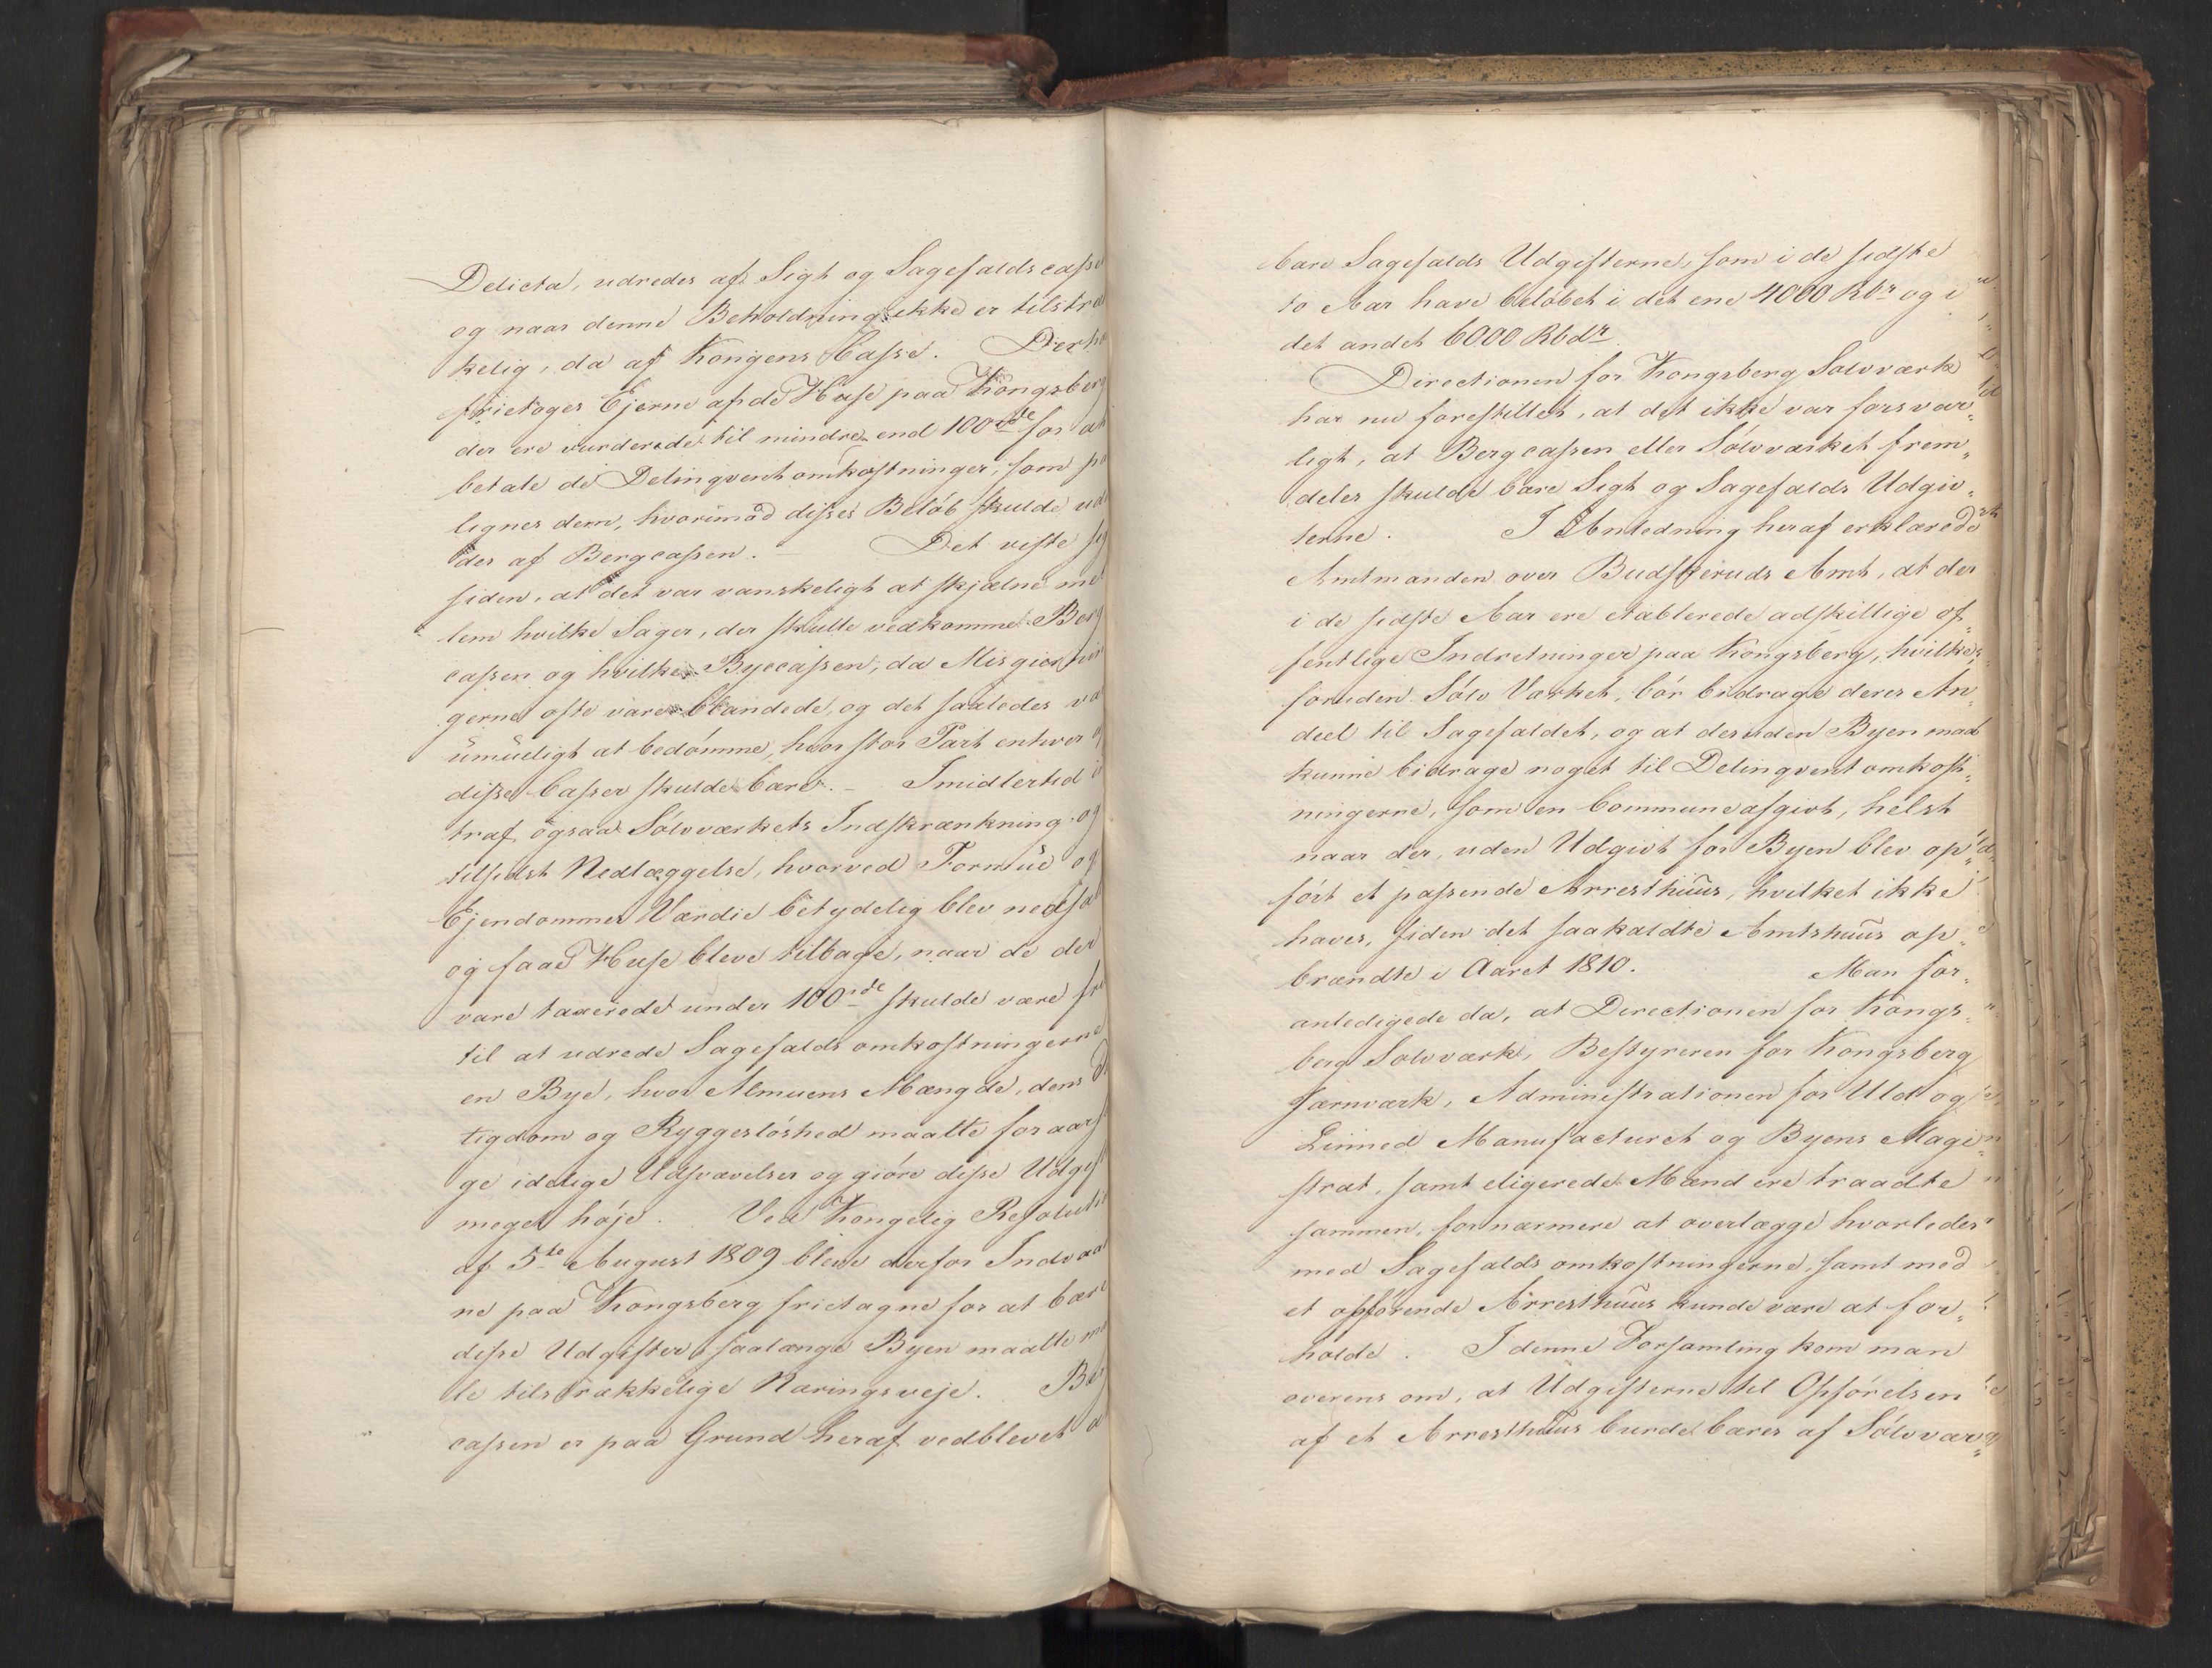 Delicta, udredes af Sigt og Sagefaldscasse
og naar denne Beholdning ikke er tilstræ
kelig, da af Kongens Casse. Derho
frietoges Ejerne af de Huse paa Kongsberg
der ere vurderede til mindre end 100 rde for at
betale de Delinqventomkostninger, som paa
lignes dem, hvorimod disses Beløb skulde ud
des af Bergcassen. — Det viste sig
siden, at det var vanskeligt at skjelne mel
lem hvilke Sager, der skulle vedkomme Berg
cassen og hvilke Byecassen, da Misgierni
gerne ofte vare blandede, og det saaledes va
umueligt at bedømme, hvor stor Part enhver a
disse Casser skulde bære. — Imidlertid i
traf ogsaa Sølvværkets Indskrænkning og
tilsidst Nedlæggelse, hvorved Formue og
Ejendommes Værdie betydelig blev nedsat
og faae Huse bleve tilbage, naar de der
vare taxerede under 100 rde skulde være fri
til at udrede Sagefaldsomkostningerne
en Bye, hvor Almuens Mængde, dens
tigdom og Ryggesløshed maatte foraarsa
ge idelige Udsvævelser og giøre disse Udgift
meget høje. Ved Kongelig Resolutio
af 5te August 1809 bleve derfor Indvaa
ne paa Kongsberg frietagne for at bære
disse Udgifter, saalænge Byen maatte
le tilstrækkelige Næringsveje. Berg
cassen er paa Grund heraf vedblevet a
bære Sagefalds Udgifterne, som i de sidste
to Aar have beløbet i det ene 4000 Rbr og i
det andet 6000 Rbdr
Directionen for Kongsberg Sølvværk
har nu forestillet, at det ikke var forsvar„
ligt, at Bergcassen eller Sølvværket frem„
deles skulde bære Sigt og Sagefalds Udgiv„
terne. I Anledning heraf erklærede
Amtmanden over Budskeruds Amt, at der
i de sidste Aar ere etablerede adskillige of„
fentlige Indretninger paa Kongsberg, hvilke,
foruden Sølv Værket, bør bidrage deres An„
deel til Sagefaldet, og at desuden Byen maa
kunne bidrage noget til Delinqventomkost„
ningerne, som en Communeafgivt, helst
naar der, uden Udgivt for Byen blev op„
ført et passende Arresthuus, hvilket ikke
haves, siden det saakaldte Amtshuus op„
brændte i Aaret 1810. Man for„
anledigede da, at Directionen for Kongs„
berg Sølvværk, Bestyreren for Kongsberg
Jernværk, Administrationen for Uld og
Linned Manufacturet og Byens Magi„
strat, samt eligerede Mænd ere traadte
sammen, for nærmere at overlægge hvorledes
med Sagefaldsomkostningerne, samt med
et opførende Arresthuus kunde være at for„
holde. I denne Forsamling kom man
overens om, at Udgifterne til Opførelsen
af et Arresthuus burde bæres af Sølvvær„